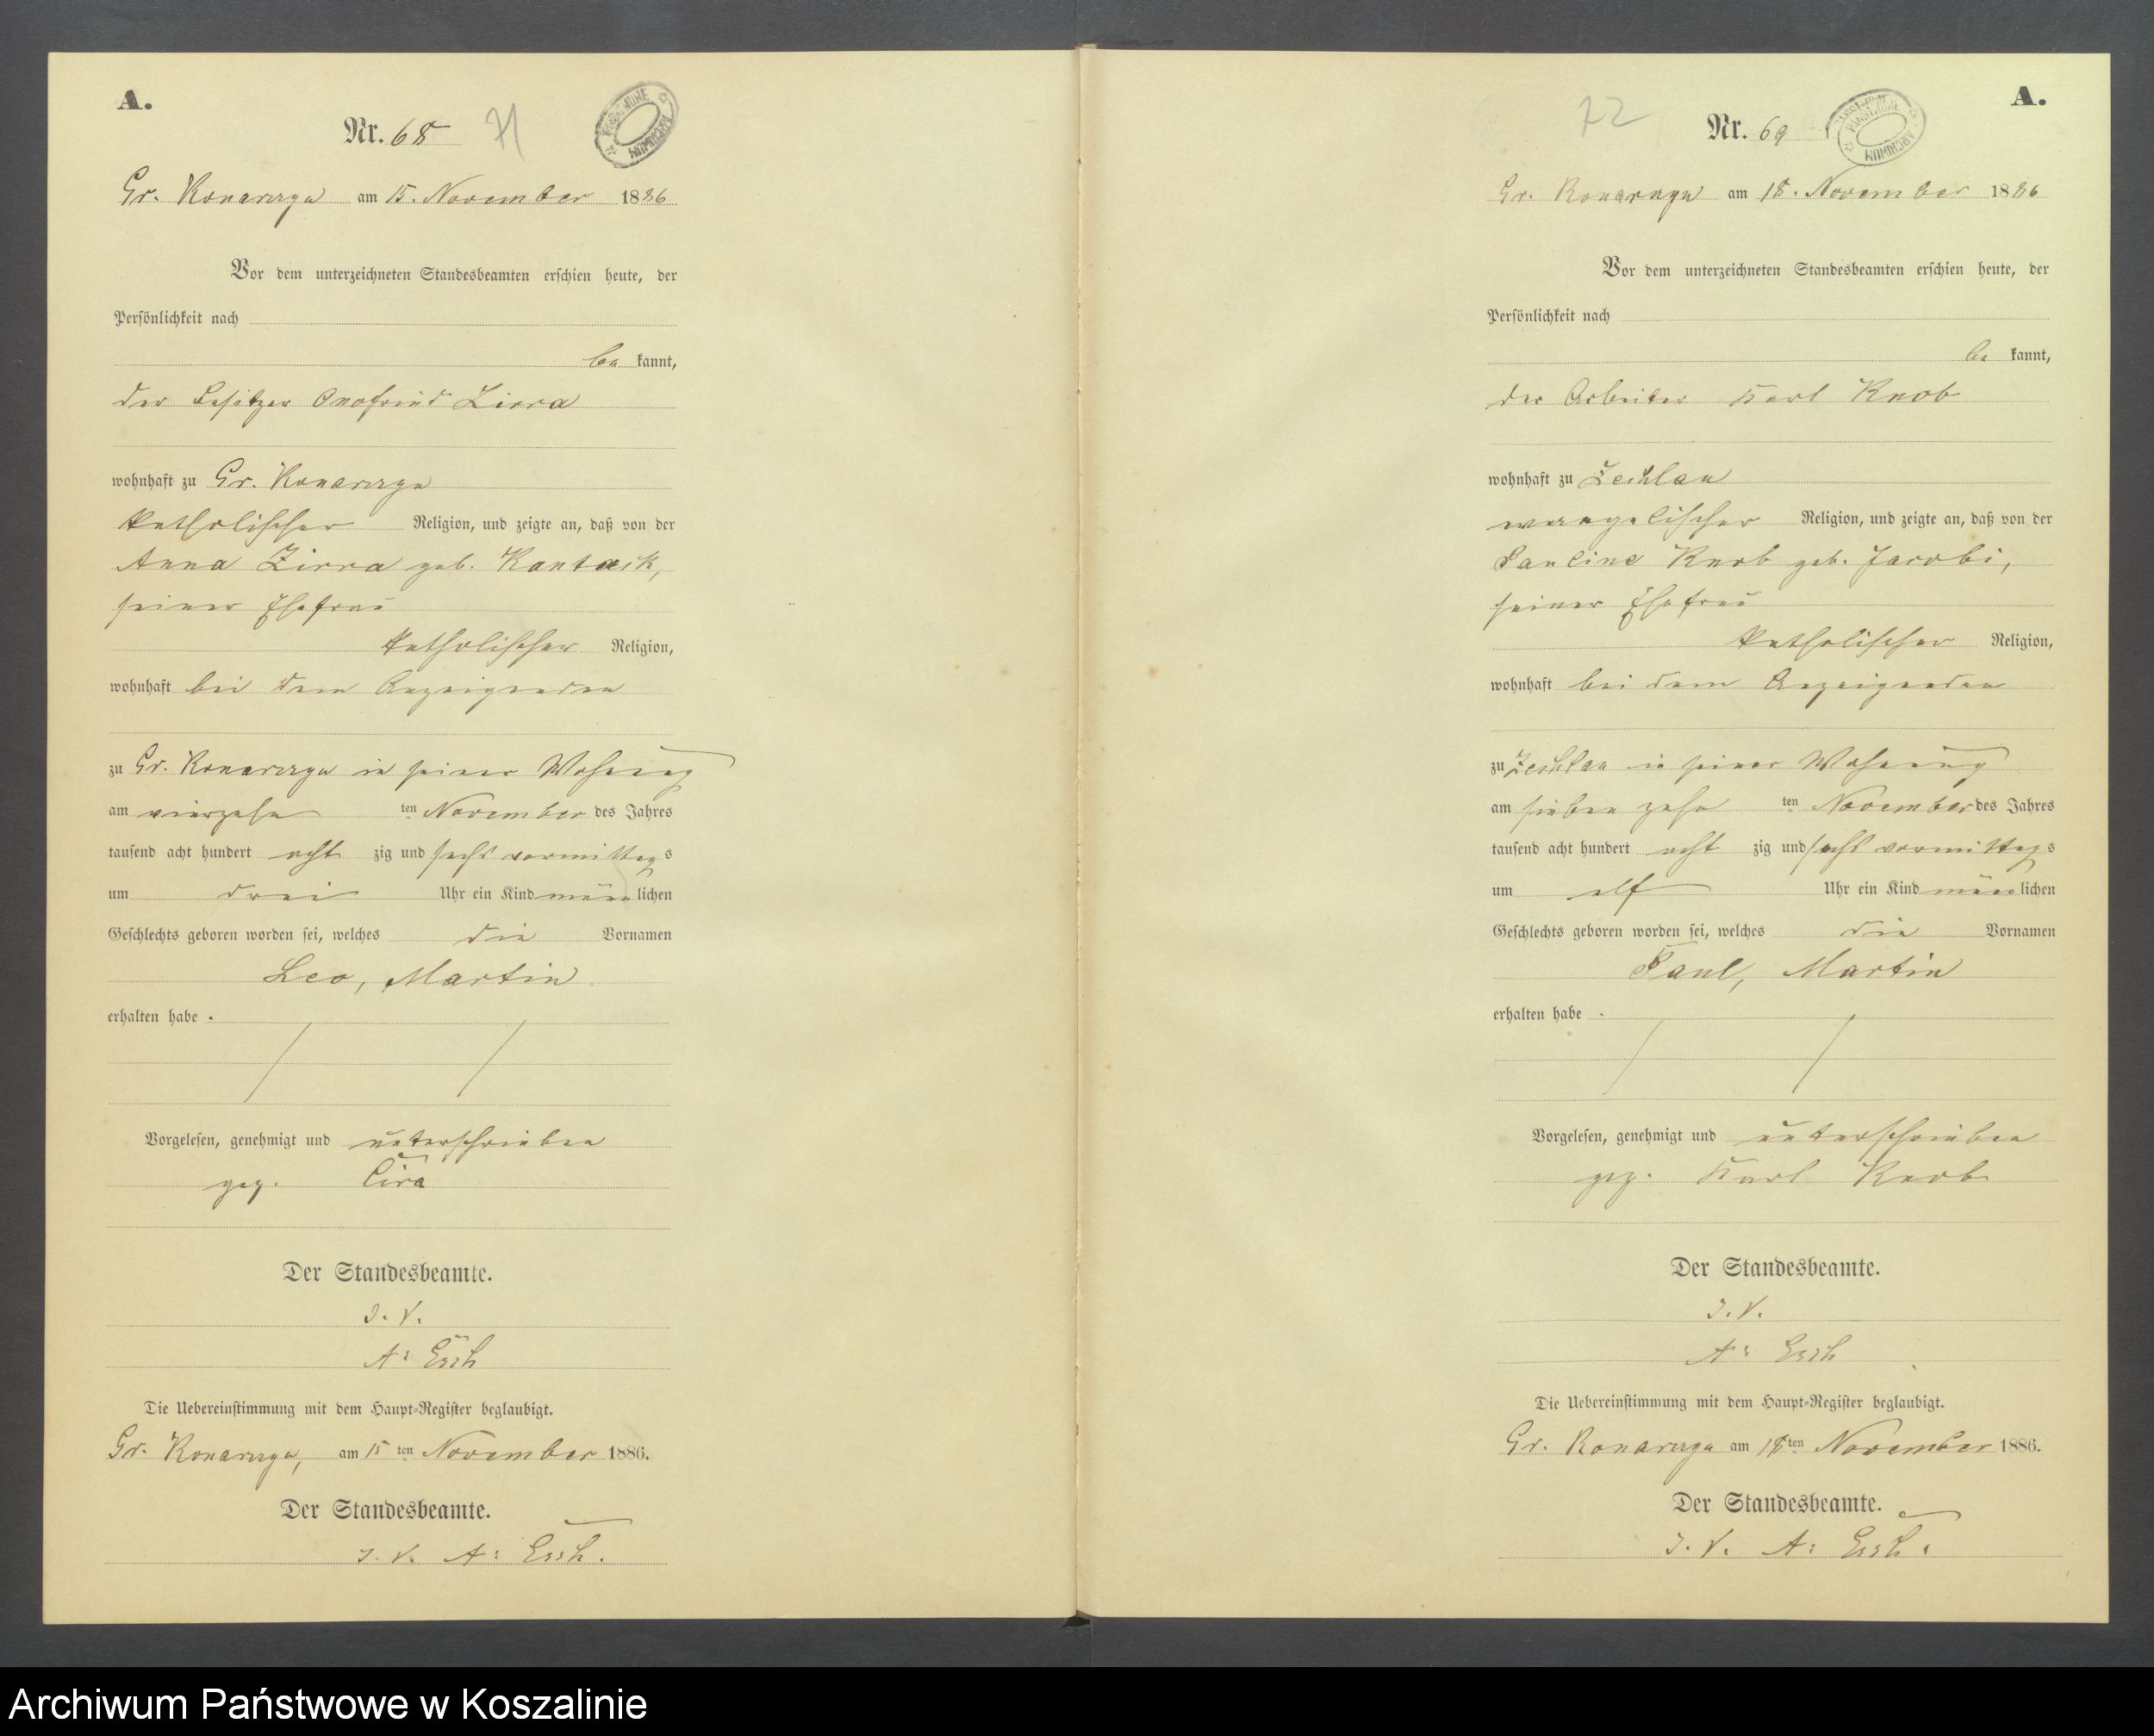 A.
Nr. 68 71
Gr. Konarczyn am 15. November 1886
Vor dem unterzeichneten Standesbeamten erschien heute, der
Persönlichkeit nach
be kannt,
der Besitzer Onofrius Zirra
wohnhaft zu Gr. Konarczyn
katholischer Religion, und zeigte an, daß von der
Anna Zirra geb. Kantack,
seiner Ehefrau
katholischer Religion,
wohnhaft bei dem Anzeigenden
zu Gr. Konarczyn in seiner Wohnung
am vierzehn ten November des Jahres
tausend acht hundert acht zig und sechs vormittags
um drei Uhr ein Kind männlichen
Geschlechts geboren worden sei, welches die Vornamen
Leo, Martin
erhalten habe.
Vorgelesen, genehmigt und unterschrieben
gez. Cira
Der Standesbeamte.
I. V.
A:
Die Uebereinstimmung mit dem Haupt-Register beglaubigt.
Gr. Konarczyn, am 15 ten November 1886.
Der Standesbeamte.
I. V. A:
A.
72 Nr. 69
Gr. Konarczyn am 18. November 1886
Vor dem unterzeichneten Standesbeamten erschien heute, der
Persönlichkeit nach
be kannt,
der Arbeiter Karl Knob
wohnhaft zu Zechlau
evangelischer Religion, und zeigte an, daß von der
Pauline Knob geb. Jacobi,
seiner Ehefrau
katholischer Religion,
wohnhaft bei dem Anzeigenden
zu Zechlau in seiner Wohnung
am sieben zehn ten November des Jahres
tausend acht hundert acht zig und sechs vormittags
um elf Uhr ein Kind männlichen
Geschlechts geboren worden sei, welches die Vornamen
Paul, Martin
erhalten habe.
Vorgelesen, genehmigt und unterschrieben
gez. Karl Knob
Der Standesbeamte.
I. V.
A:
Die Uebereinstimmung mit dem Haupt-Register beglaubigt.
Gr. Konarczyn am 18 ten November 1886.
Der Standesbeamte.
I. V. A:
Archiwum Państwowe w Koszalinie